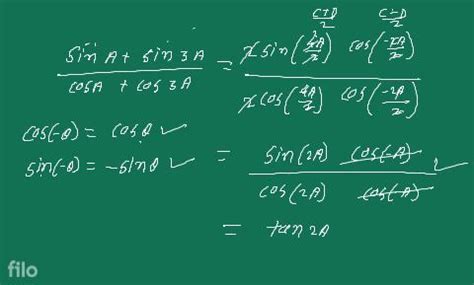 C+D/2 C-D/2
(sin A + sin 3A)/(cos A + cos 3A) = (2 sin(4A/2) cos(-2A/2))/(2 cos(4A/2) cos(-2A/2))
cos(-θ) = cos θ ✓
sin(-θ) = -sin θ ✓
= (sin(2A) cos(-A))/(cos(2A) cos(-A))
= tan 2A
filo